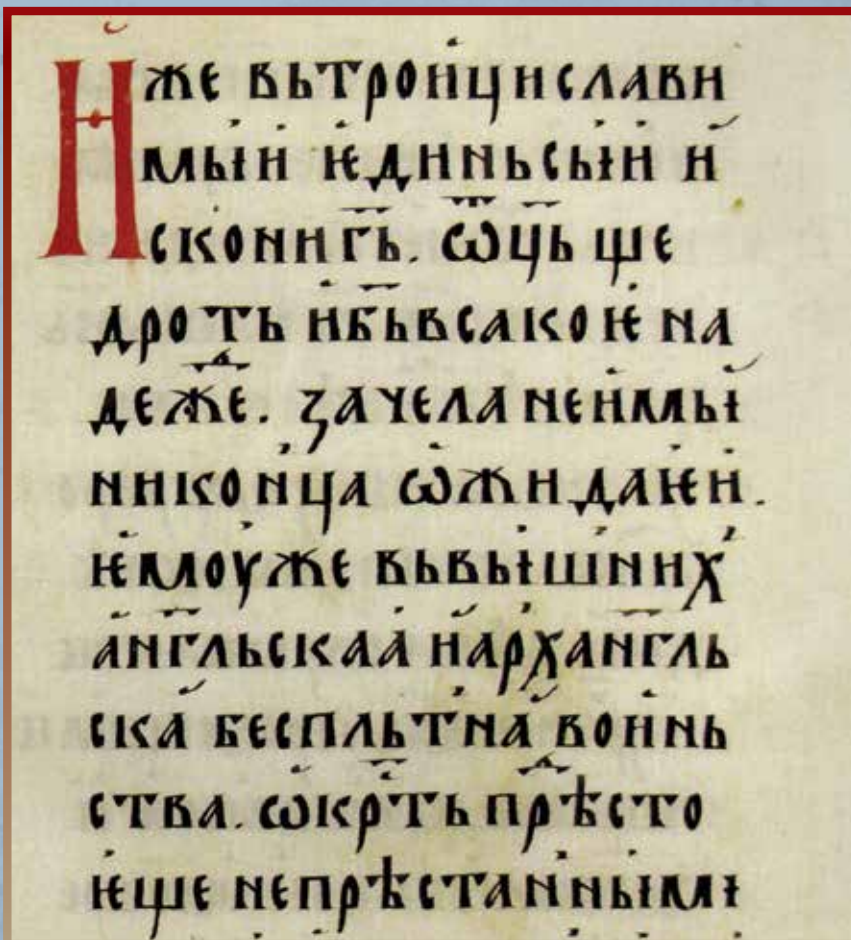 Иже вьтроици слави
мыи ѥдиньсыи и
скони г҃ь. ѿц҃ь ще
дроть и б҃ь всакоѥ на
деже. зачела не имы
ни конца ѡжидаѥи.
ѥмоуже вь вышних
анг҃льскаа и арханг҃ль
ска беспльтна воинь
ства. ѡкр҃ть прѣсто
ѥще непрѣстанными